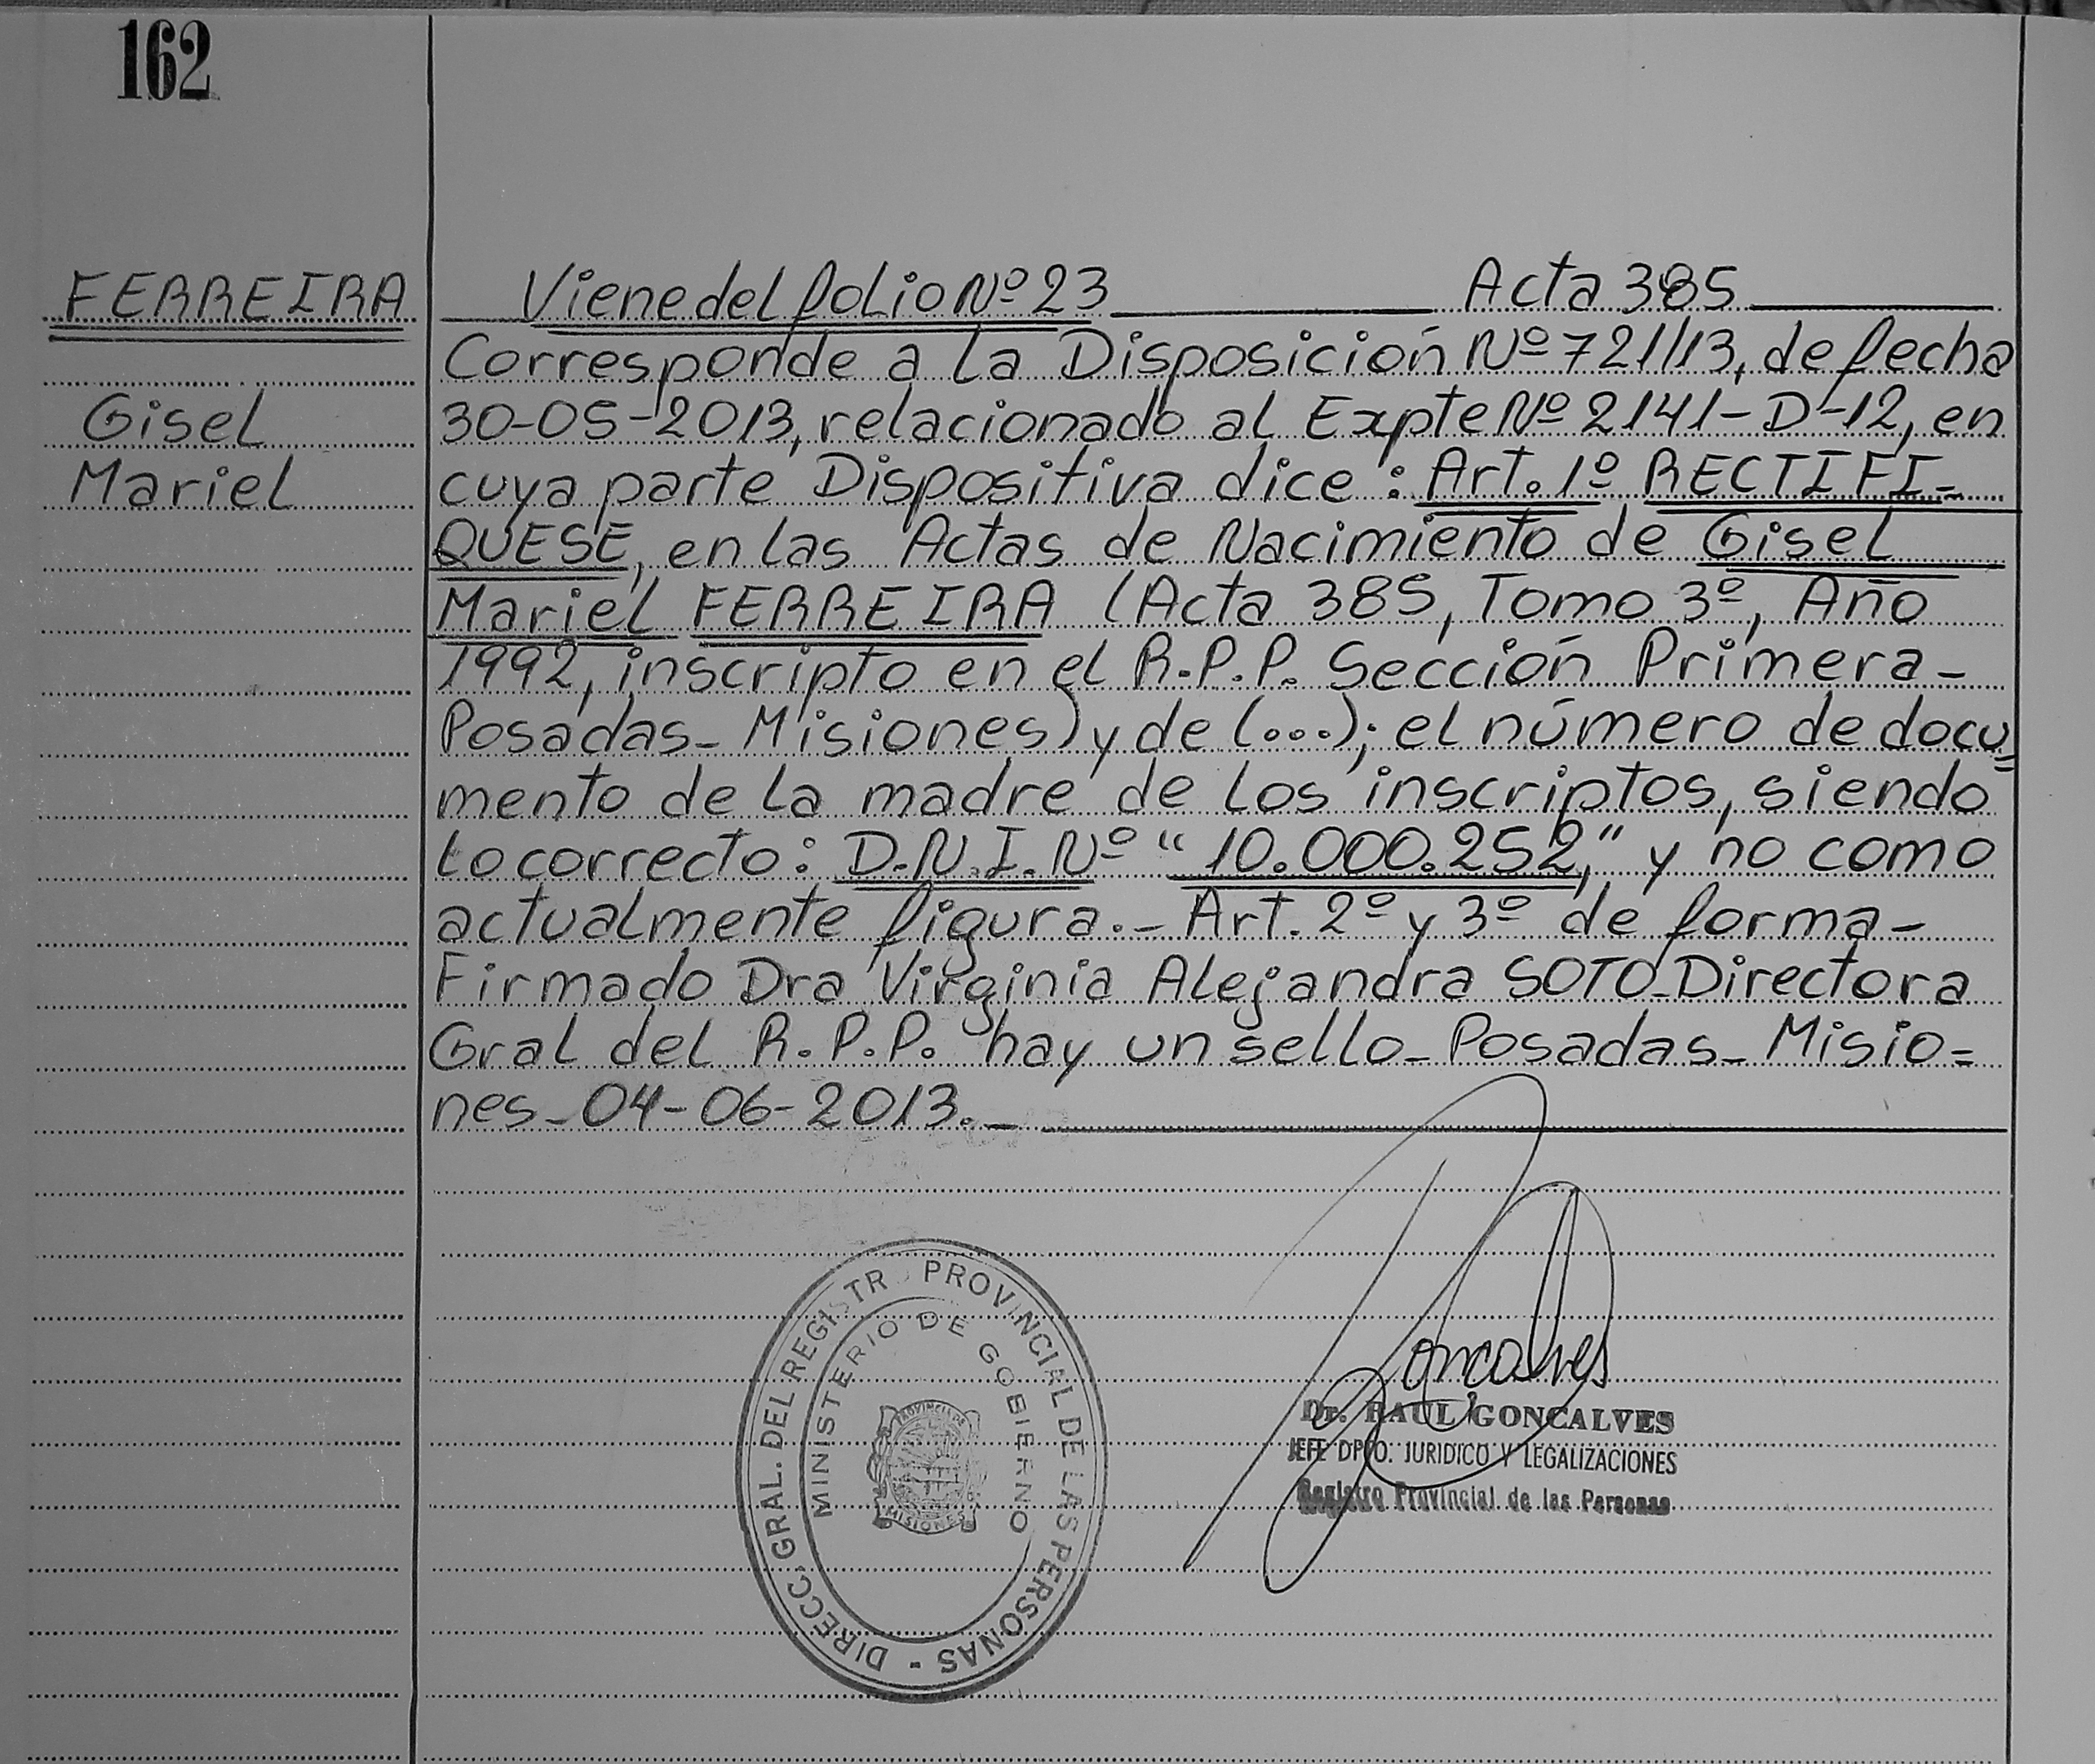 162
FERREIRA
Gisel
Mariel
Viene del folio Nº 23 Acta 385
Corresponde a la Disposición Nº 721/13, de fecha
30-05-2013, relacionado al Expte Nº 2141-D-12, en
cuya parte Dispositiva dice: Art. 1º RECTIFI-
QUESE, en las Actas de Nacimiento de Gisel
Mariel FERREIRA (Acta 385, Tomo 3º, Año
1992, inscripto en el R.P.P. Sección Primera-
Posadas- Misiones) y de (...); el número de docu=
mento de la madre de los inscriptos, siendo
lo correcto: D.N.I. Nº "10.000.252," y no como
actualmente figura.- Art. 2º y 3º de forma-
Firmado Dra Virginia Alejandra SOTO-Directora
Gral del R.P.P. hay un sello- Posadas- Misio=
nes- 04-06-2013.-
DIRECC. GRAL. DEL REGISTR PROVINCIAL DE LAS PERSONAS -
MINISTERIO DE GOBIERNO
PROVINCIA DE
MISIONES
Goncalves
Dr. RAUL GONCALVES
JEFE DPTO. JURIDICO Y LEGALIZACIONES
Registro Provincial de las Personas